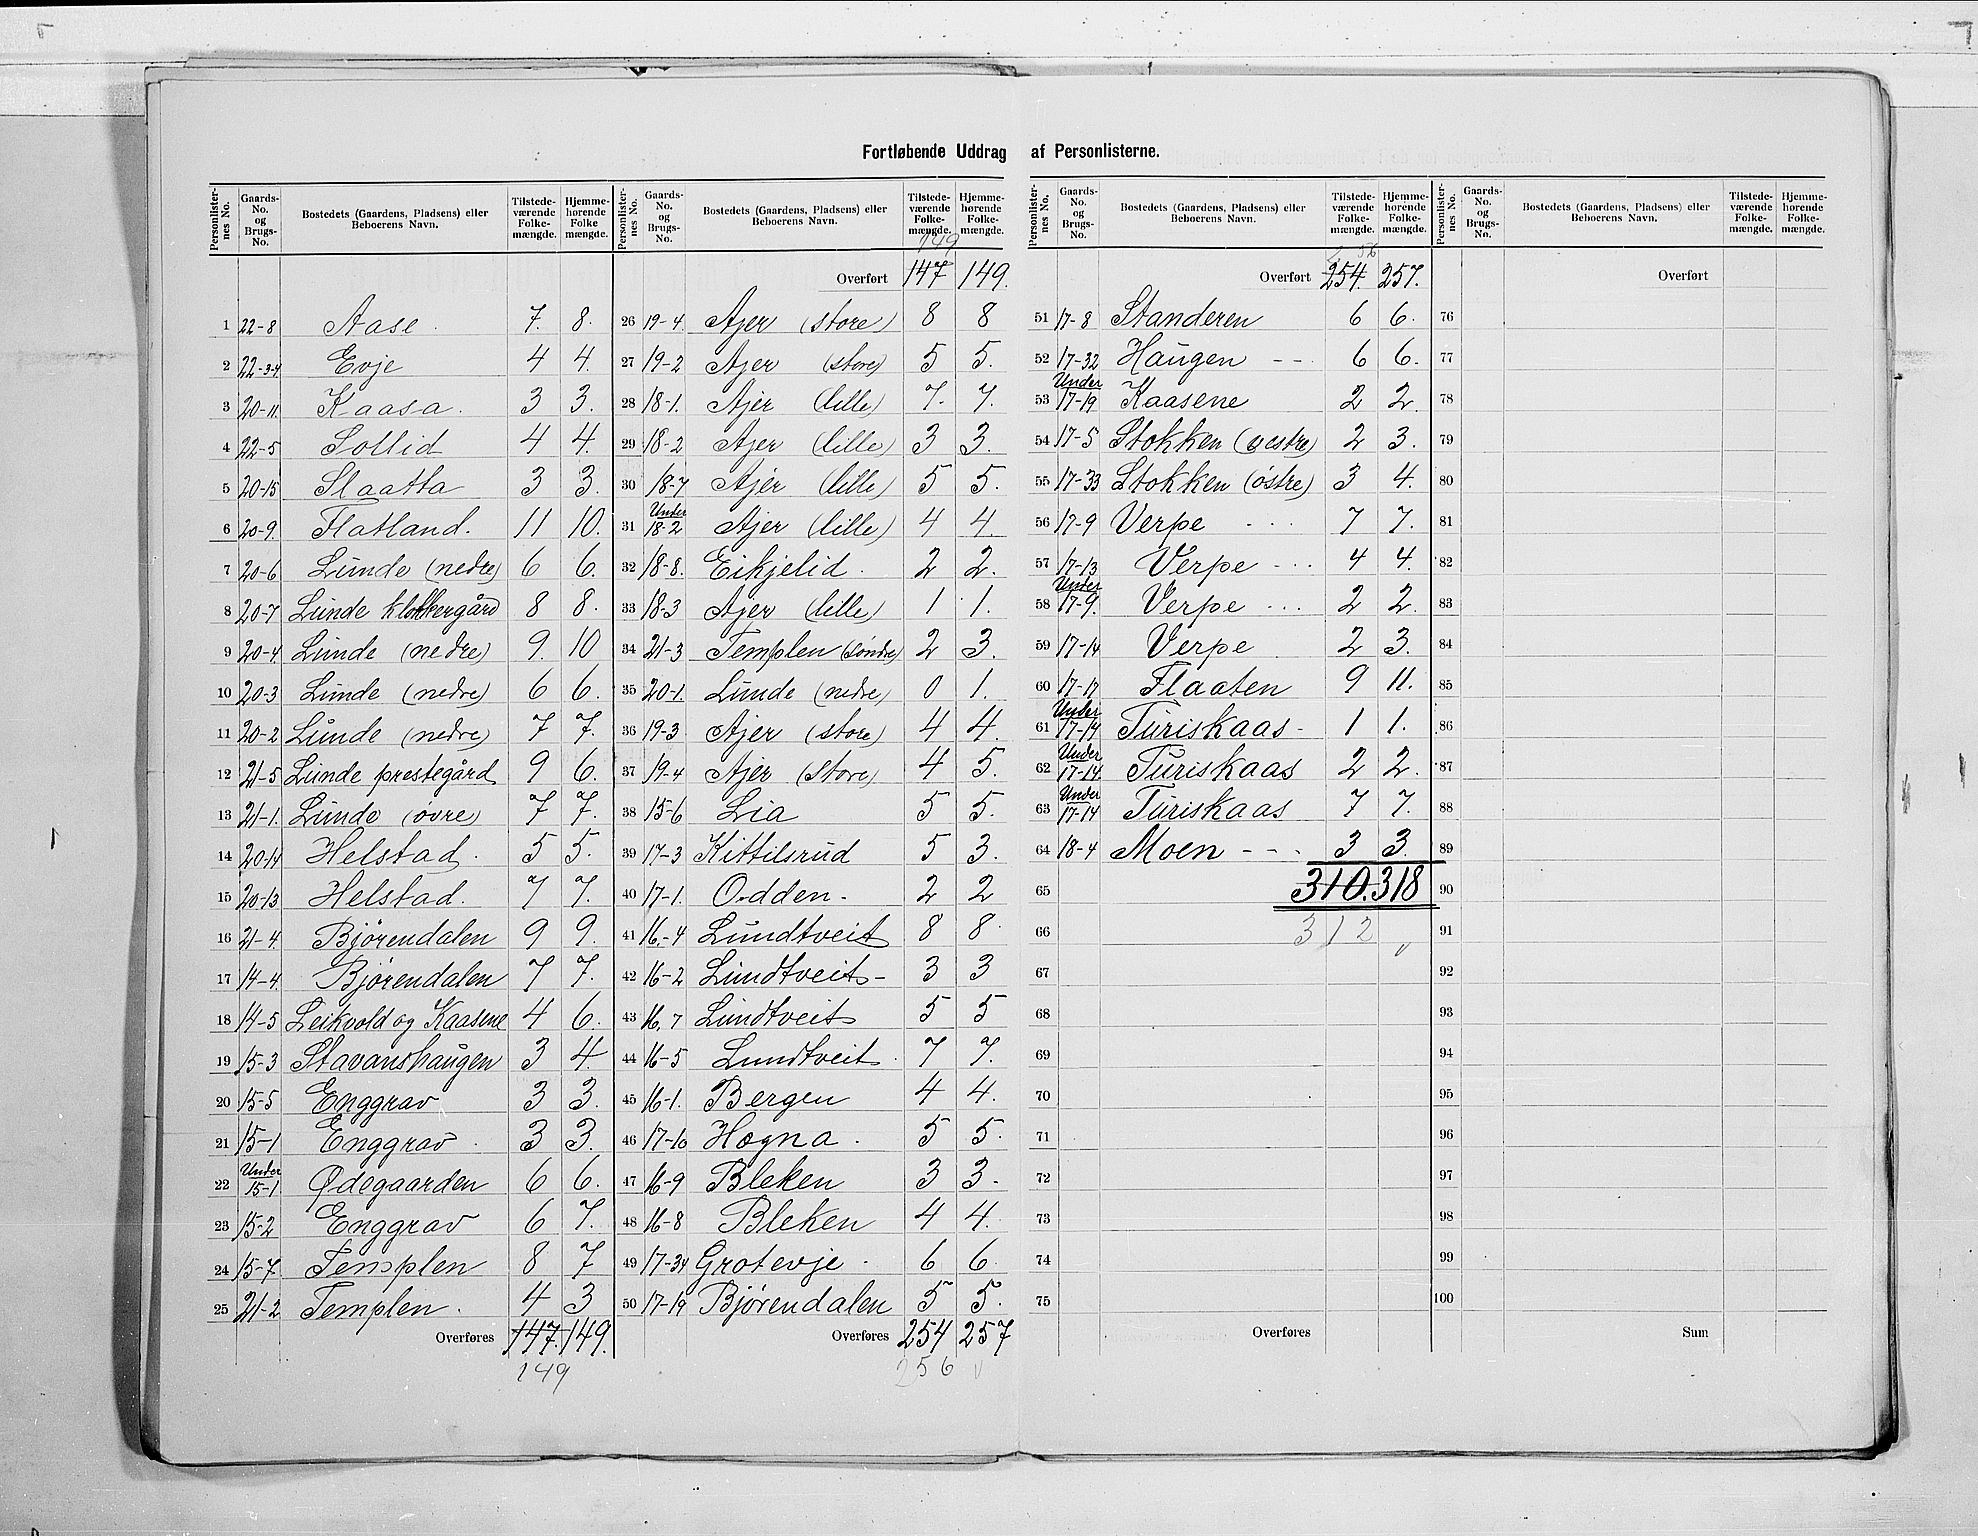 Fortløbende Uddrag af Personlisterne.
Personlister-nes No. | Gaards-No. og Brugs-No. | Bostedets (Gaardens, Pladsens) eller Beboerens Navn. | Tilstede-værende Folke-mængde. | Hjemme-hørende Folke mængde.
1 22-8 Aase 7. 8.
2 22-3-4 Evje 4 4.
3 20-11. Kaasa. 3 3.
4 22-5 Sollid 4 4.
5 20-15 Slaatta 3 3.
6 20-9. Flatland. 11 10.
7 20-6 Lunde (nedre) 6 6.
8 20-7 Lunde klokkergård 8 8.
9 20-4. Lunde (nedre) 9. 10
10 20-3 Lunde (nedre) 6 6.
11 20-2 Lunde (nedre) 7 7.
12 21-5 Lunde prestegård 9 6.
13 21-1. Lunde (øvre) 7 7.
14 20-14 Helstad. 5 5.
15 20-13 Helstad. 7 7.
16 21-4. Bjørendalen 9 9.
17 14-4. Bjørendalen 7 7.
18 14-5 Leikvold og Kaasene 4 6.
19 15-3 Stavanshaugen 3 4.
20 15-5 Enggrav 3 3.
21 15-1 Enggrav 3 3.
22 Under 15-1 Ødegaarden 6 6.
23 15-2 Enggrav 6 7.
24 15-7 Templen 8 7
25 21-2 Templen. 4 3
Overføres 147. 149.
149
Personlister-nes No. | Gaards-No. og Brugs-No. | Bostedets (Gaardens, Pladsens) eller Beboerens Navn. | Tilstede-værende Folke-mængde. | Hjemme-hørende Folke-mængde.
149
Overført 147 149.
26 19-4 Ajer (store) 8 8
27 19-2 Ajer (store) 5 5.
28 18-1. Ajer (lille) 7. 7.
29 18-2 Ajer (lille) 3 3.
30 18-7 Ajer (lille) 5 5.
31 Under 18-2 Ajer (lille) 4 4.
32 18-8. Eikjelid. 2 2.
33 18-3 Ajer (lille) 1 1.
34 21-3 Templen (søndre) 2 3.
35 20-1. Lunde (nedre) 0 1.
36 19-3 Ajer (store) 4 4.
37 19-4 Ajer (store) 4 5.
38 15-6 Lia 5 5.
39 17-3 Kittilsrud 5 3.
40 17-1. Odden. 2 2
41 16-4 Lundtveit 8 8.
42 16-2 Lundtveit- 3 3
43 16,7 Lundtveit 5 5
44 16-5 Lundtveit. 7 7.
45 16-1. Bergen 4 4.
46 17-10 Høgna. 5 5.
47 16-9 Bleken 3 3.
48 16-8 Bleken 4 4.
49 17-34 Grotevje. 6 6.
50 17-19 Bjørendalen 5 5.
Overføres 254 257
256 v
Personlister-nes No. | Gaards-No. og Brugs-No. | Bostedets (Gaardens, Pladsens) eller Beboerens Navn. | Tilstede-værende Folke-mængde. | Hjemme-hørende Folke-mængde.
256
Overført 254. 257.
51 17-8 Standeren 6 6.
52 17-32 Haugen -- 6 6.
53 Under 17-19 Kaasene 2 2.
54 17-5 Stokken (vestre) 2 3.
55 17-33 Stokken (østre) 3 4.
56 17-9 Verpe --- 7 7.
57 17-13 Verpe --- 4 4.
58 Under 17-9. Verpe ... 2 2.
59 17-14 Verpe 2 3.
60 17-17 Flaaten 9 11.
61 Under 17-14 Turiskaas - 1 1.
62 Under 17-14. Turiskaas 2 2.
63 Under 17-14 Turiskaas 7 7.
64 18-4 Moen --- 3 3.
65 310. 318
66 312 v
67
68
69
70
71
72
73
74
75
Overføres
Personlister-nes No. | Gaards-No. og Brugs-No. | Bostedets (Gaardens, Pladsens) eller Beboerens Navn. | Tilstede-værende Folke-mængde. | Hjemme-hørende Folke-mængde.
Overført
76
77
78
79
80
81
82
83
84
85
86
87
88
89
90
91
92
93
94
95
96
97
98
99
100
Sum